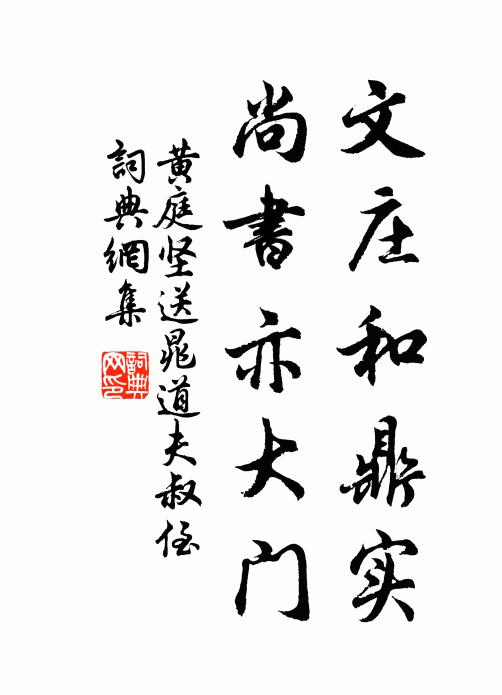 文庄和鼎实
尚書亦大门
黄庭坚送晁道夫叔侄
詞典網集
詞典
网印